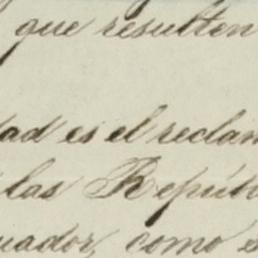 que resulten
dad es el reclam
las Repúb
uador, como s